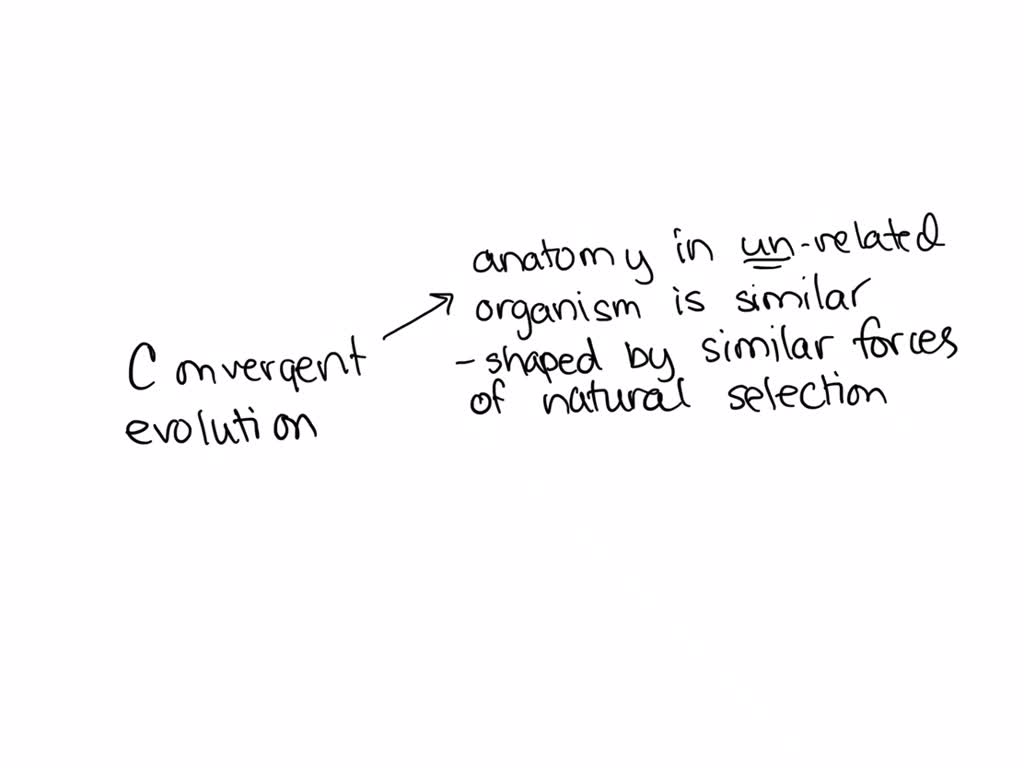 Convergent
evolution
anatomy in un-related
organism is similar
- shaped by similar forces
of natural selection